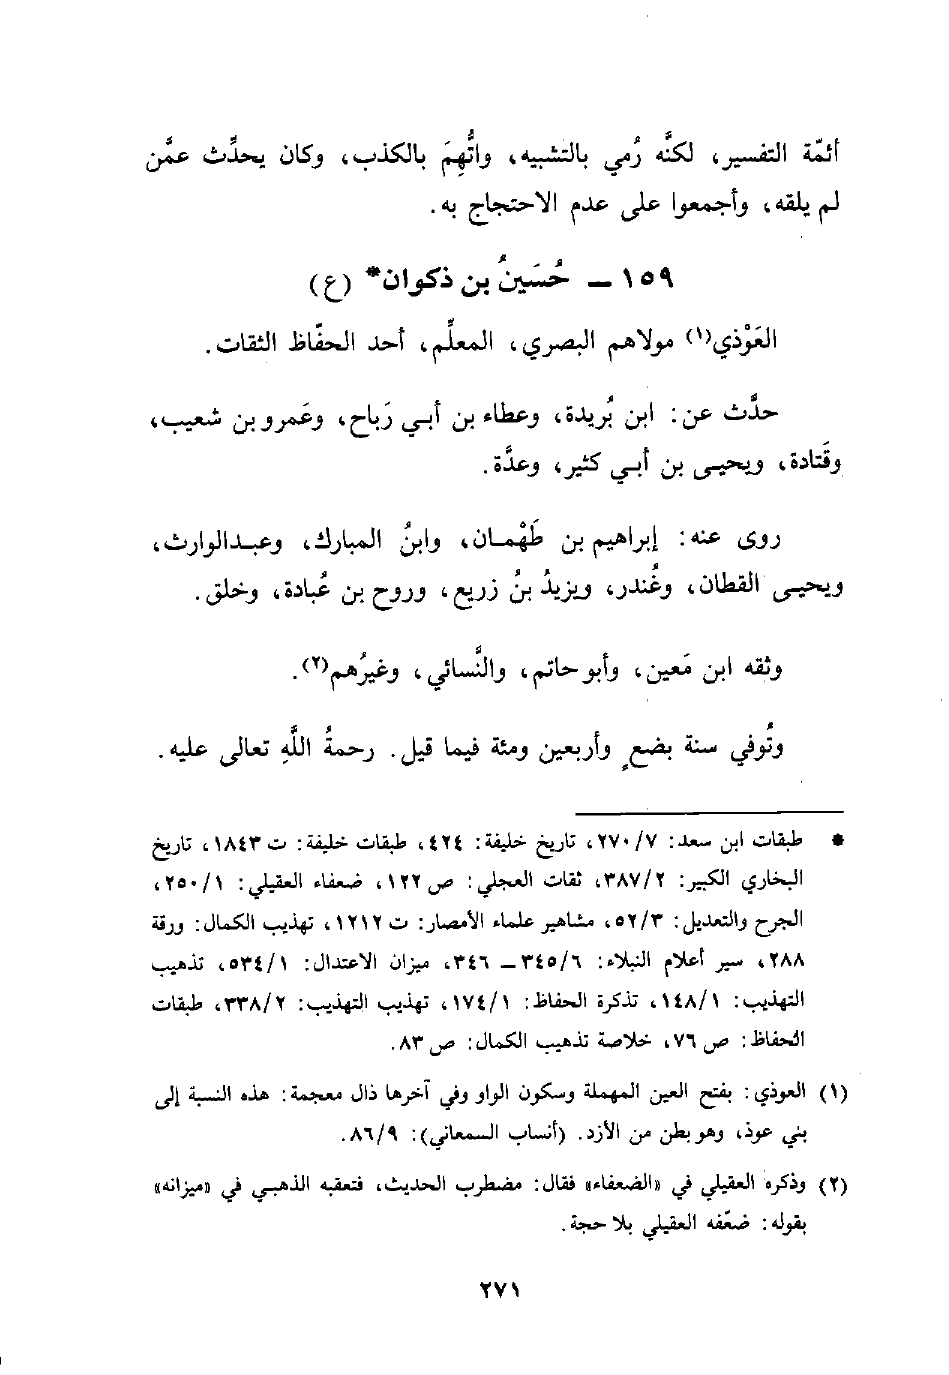 أئمّة التفسير، لكنَّه رُمي بالتشبيه، واتُّهِمَ بالكذب، وكان يحدِّث عمَّن
لم يلقه، وأجمعوا على عدم الاحتجاج به.
١٥٩ ــ حُسَينُ بن ذكوان* (ع)
العَوْذي(١) مولاهم البصري، المعلِّم، أحد الحفّاظ الثقات.
حدَّث عن: ابن بُريدة، وعطاء بن أبي رَباح، وعَمرو بن شعيب،
وقَتادة، ويحيى بن أبي كثير، وعدَّة.
روى عنه: إبراهيم بن طَهْمان، وابنُ المبارك، وعبدالوارث،
ويحيى القطان، وغُندر، ويزيدُ بنُ زريع، وروح بن عُبادة، وخلق.
وثقه ابن مَعين، وأبو حاتم، والنَّسائي، وغيرُهم(٢).
وتُوفي سنة بضعٍ وأربعين ومئة فيما قيل. رحمةُ اللَّهِ تعالى عليه.
* طبقات ابن سعد: ٢٧٠/٧، تاريخ خليفة: ٤٢٤، طبقات خليفة: ت ١٨٤٣، تاريخ
البخاري الكبير: ٣٨٧/٢، ثقات العجلي: ص ١٢٢، ضعفاء العقيلي: ٢٥٠/١،
الجرح والتعديل: ٥٢/٣، مشاهير علماء الأمصار: ت ١٢١٢، تهذيب الكمال: ورقة
٢٨٨، سير أعلام النبلاء: ٣٤٥/٦ ــ ٣٤٦، ميزان الاعتدال: ٥٣٤/١، تذهيب
التهذيب: ١٤٨/١، تذكرة الحفاظ: ١٧٤/١، تهذيب التهذيب: ٣٣٨/٢، طبقات
الحفاظ: ص ٧٦، خلاصة تذهيب الكمال: ص ٨٣.
(١) العوذي: بفتح العين المهملة وسكون الواو وفي آخرها ذال معجمة: هذه النسبة إلى
بني عوذ، وهو بطن من الأزد. (أنساب السمعاني): ٨٦/٩.
(٢) وذكره العقيلي في «الضعفاء» فقال: مضطرب الحديث، فتعقبه الذهبي في «ميزانه»
بقوله: ضعّفه العقيلي بلا حجة.
٢٧١